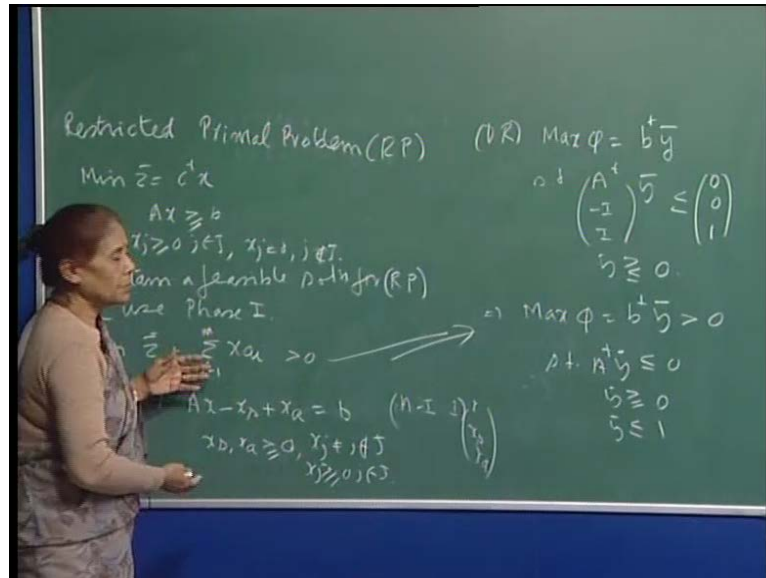 Restricted Primal Problem (RP)
Min z̄ = cᵗx
Ax ≥ b
xj ≥ 0 j∈J, xj = 0, j∉J.
a feasible soln for (RP)
use Phase I.
Σ xai > 0
Ax - xs + xa = b (A -I I)
xs, xa ≥ 0, xj j∉J
xj ≥ 0, j∈J.
(DR) Max φ = bᵗȳ
s.t (Aᵗ -I I) ȳ ≤ (0 0 1)
ȳ ≥ 0.
=) Max φ = bᵗȳ > 0
s.t. Aᵗȳ ≤ 0
ȳ ≥ 0
ȳ ≤ 1